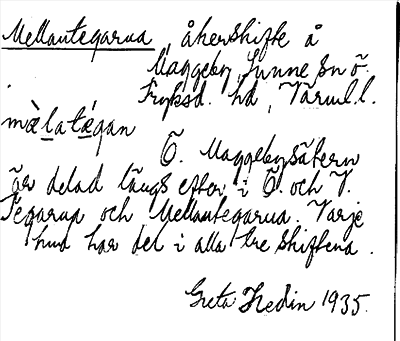 Mellantegarna, åkerskifte å
Uaggeby, Sunne sn Ö.
Fryksd. hd, Värml.l.
mæ̀latǽgan
Ö. Uaggebysätern
är delad längs efter i Ö. och V.
Tegarna och Mellantegarna. Varje
hud har del i alla tre skiftena.
Greta Hedin 1935.